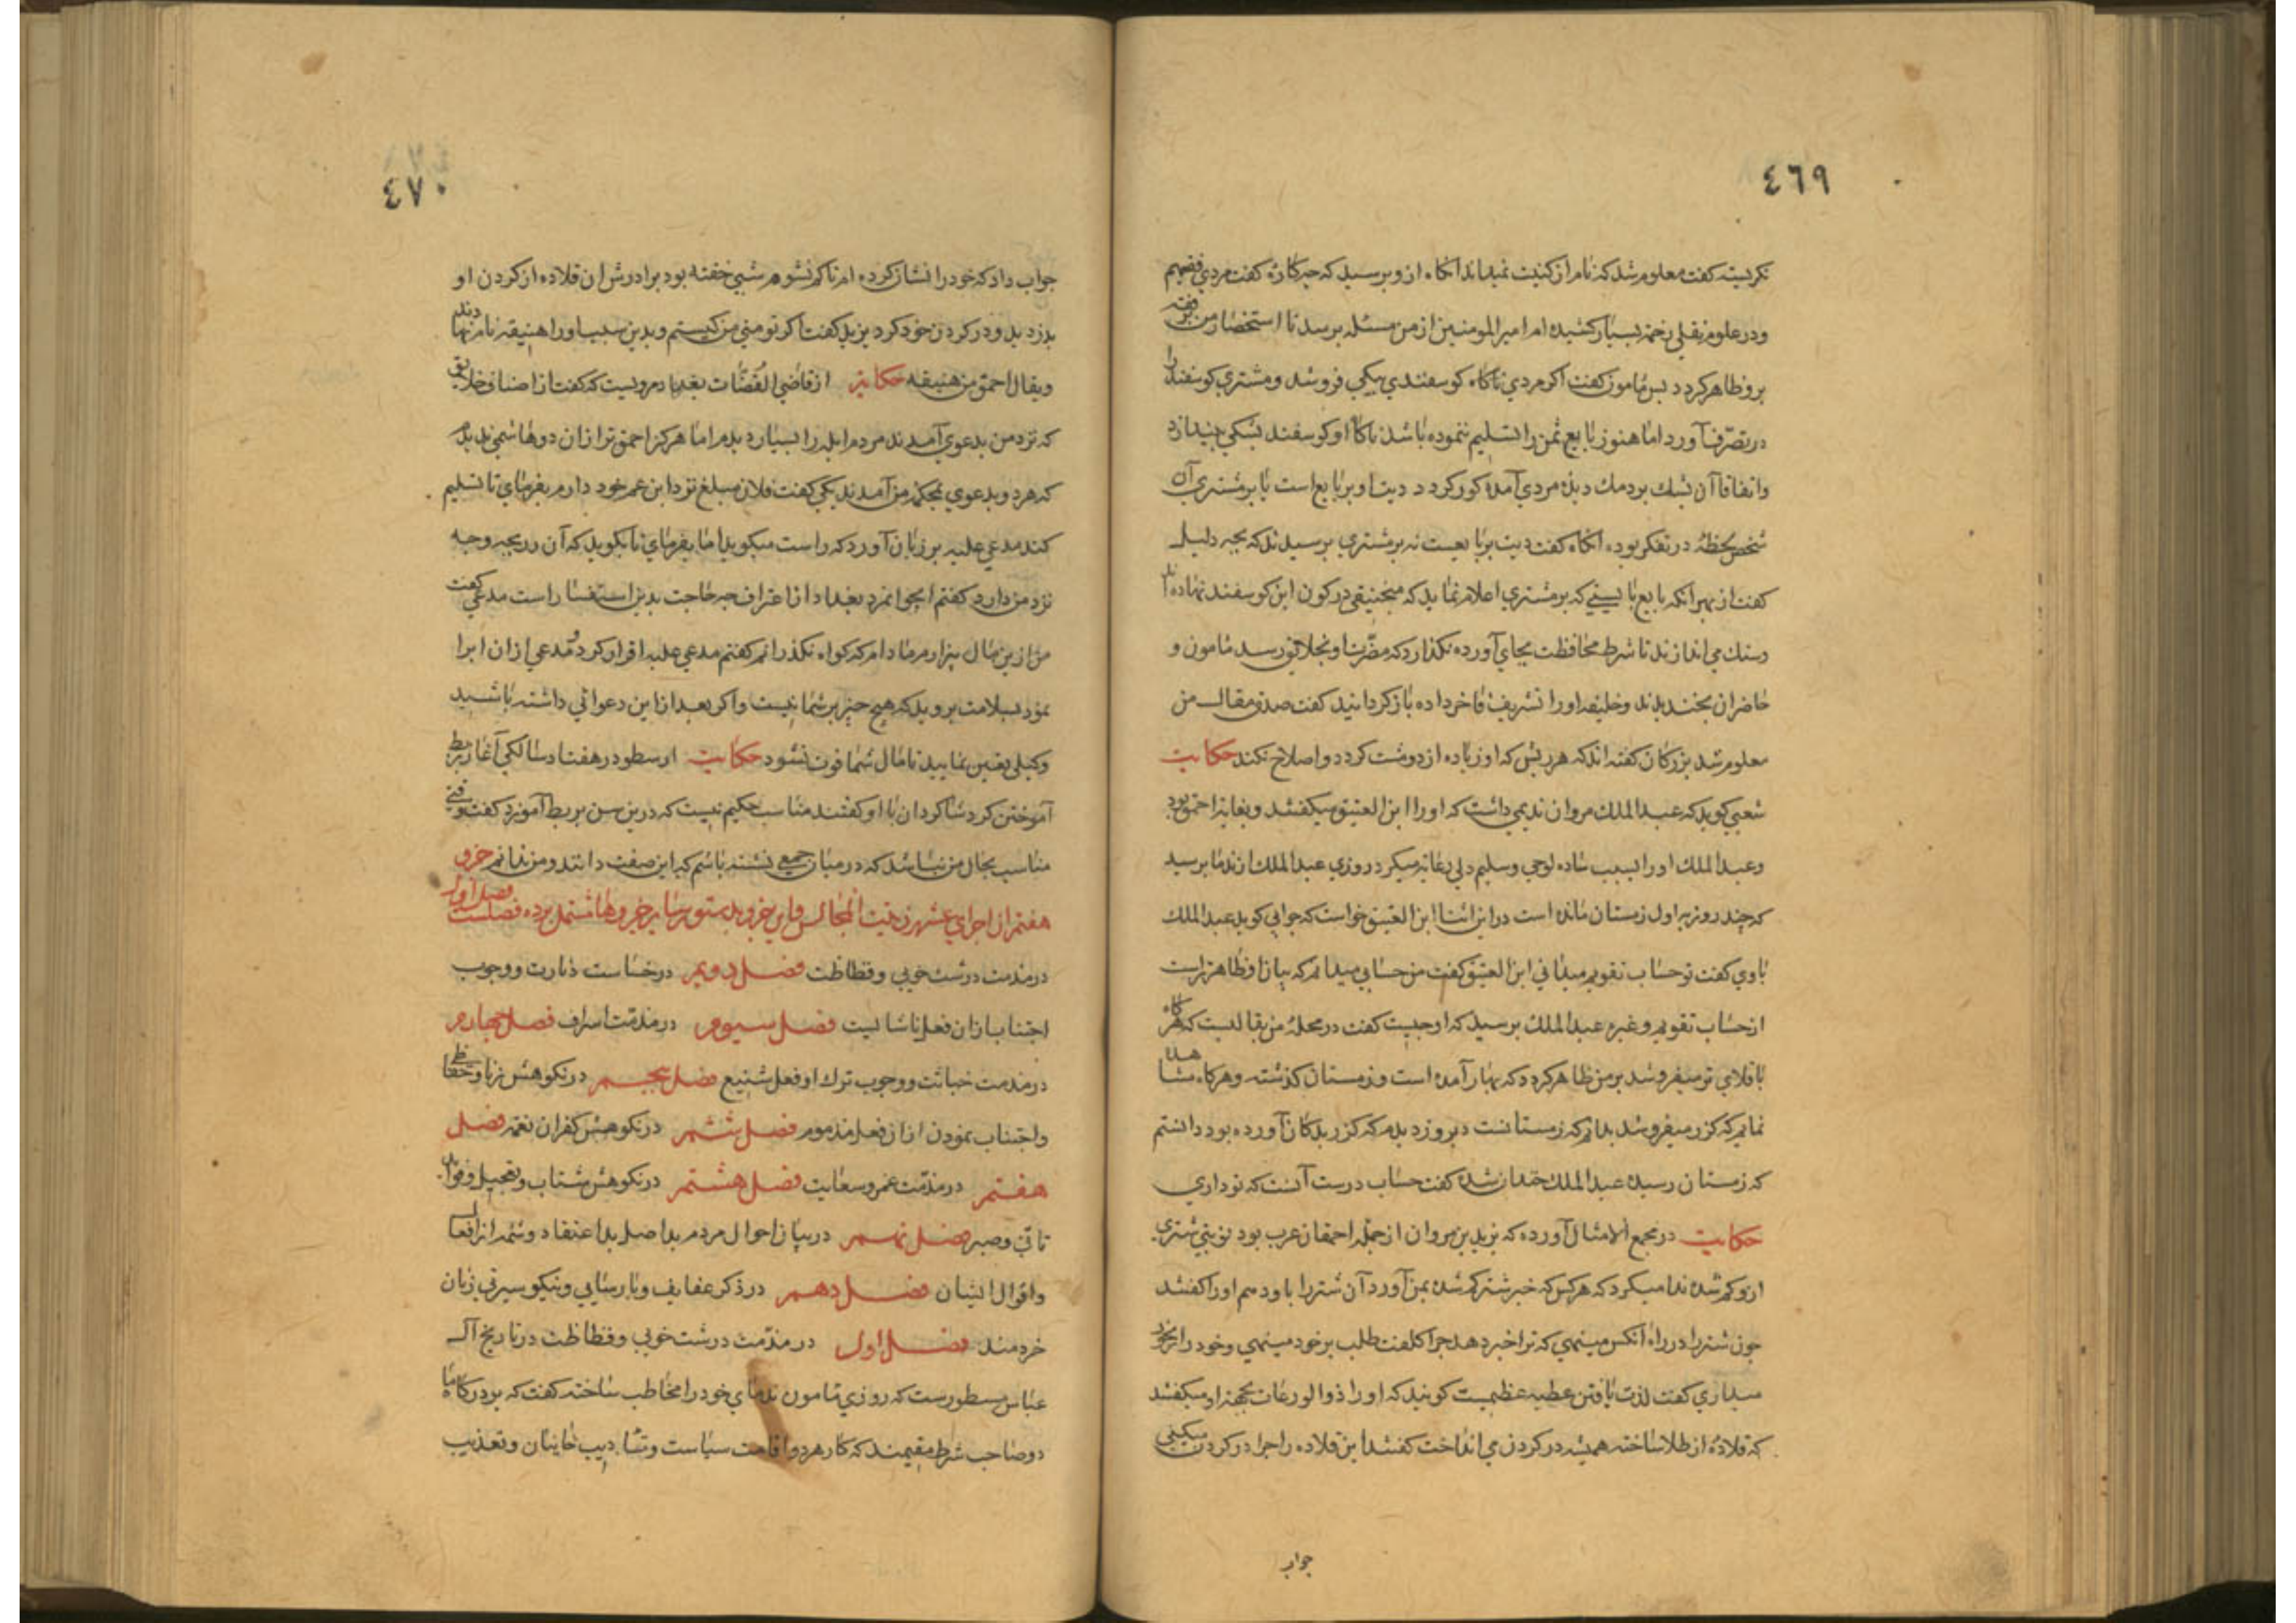 ٤٦٩
نکریسته کفت معلوم شد که نام از کنیت نمیداند انکاه ازو پرسید که چه کاره کفت مردی فقیهم
ودر علوم نقلی زحمت بسیار کشیده ام امیر المومنین از من مسئله پرسد تا استحضار من در فقه
برو ظاهر کردد پس مامون کفت اکر مردی ناکاه کوسفندی بیکی فروشد ومشتری کوسفند را
در تصرف آورد اما هنوز بابایع ثمن را تسلیم ننموده باشد ناکاه او کوسفند پشکی بیندازد
واتفاقا آن پشك بر دمك دیدۀ مردی آمده کور کردد دیت او بر بایع است یا بر مشتری آن
شخص لحظۀ در تفکر بوده انکاه کفت دیت بر بایعست نه بر مشتری پرسیدند که بچه دلیل
کفت از بهر آنکه بایع بایستی که بر مشتری اعلام نماید که منجنیقی در کون این کوسفند نهاده اند
وسنك می اندازند تا شرط محافظت بجای آورده نکذارد که مضرت او بخلائق رسد مامون و
حاضران بخندیدند وخلیفه اورا تشریف فاخر داده باز کردانید کفت صدق مقال من
معلوم شد بزرکان کفته اند که هر ریش که او زیاده از دو مشت کردد واصلاح نکند حکایت
شعبی کوید که عبد الملك مروان ندیمی داشت که اورا ابن العتیق میکفتند وبغایة احمق بود
وعبد الملك اورا بسبب ساده لوحی وسلیم دلی رعایة میکرد روزی عبد الملك از ندما پرسید
که چند روز به اول زمستان مانده است در این اثنا ابن العتیق خواست که جوابی کوید عبد الملك
باوی کفت تو حساب تقویم میدانی ابن العتیق کفت من حسابی میدانم که بیان او ظاهرتر است
از حساب تقویم وغیره عبد الملك پرسید که او چیست کفت در محلۀ من بقالیست که هر کاه
باقلای تر میفروشد بر من ظاهر کردد که بهار آمده است وزمستان کذشته وهرکاه مشاهده
نمایم که کزر میفروشد بدانم که زمستانست دیروز دیدم که کزر بدکان آورده بود دانستم
که زمستان رسیده عبد الملك خندان شده کفت حساب درست آنست که تو داری
حکایت در مجمع الامثال آورده که یزید بن مروان از جمله احمقان عرب بود نوبتی شتری
ازو کم شده ندا میکرد که هر کس که خبر شتر کم شده بمن آورد آن شتر را باو دهم اورا کفتند
چون شتر را در راه آنکس مینهی که ترا خبر دهد چرا کلفت طلب بر خود مینهی وخود را برنج
میداری کفت لذت یافتن عطیه عظیمست کویند که اورا ذو الودعات بجهة او میکفتند
که قلادۀ از طلا ساخته همیشه در کردن می انداخت کفتند این قلاده را چرا در کردن میکنی
جواب
٤٧٠
جواب داد که خود را نشان کرده ام تا کم نشوم شبی خفته بود برادرش ان قلاده از کردن او
بدزدید ودر کردن خود کرد یزید کفت اکر تو منی من کیستم وبدین سبب اورا هبنیقه نام نهادند
ویقال احمق من هبنیقه حکایة از قاضی القضات بغداد مرویست که کفت از اصناف خلایق
که نزد من بدعوی آمدند مردم ابله را بسیار دیدم اما هرکز احمق تر از ان دو هاشمی ندیدم
که هر دو بدعوی بمحکمه من آمدند یکی کفت فلان مبلغ نزد ابن عم خود دارم بفرمای تا تسلیم
کند مدعی علیه بر زبان آورد که راست میکوید اما بفرمای تا بکوید که آن زر بچه وجه
نزد من دارد کفتم ای جوانمرد بغداد از اعتراف چه حاجت بدین استفسا راست مدعی کفت
من ازین مال بیزارم مادام که کواه نکذرانم کفتم مدعی علیه اقرار کرد ومدعی از ان ابرا
نمود بسلامت بروید که هیچ چیز بر شما نیست واکر بعد از این دعوائی داشته باشید
وکیلی تعین نمایید تا مال شما فوت نشود حکایت ارسطو در هفتاد سالکی آغاز بربط
آموختن کرد شاکردان با او کفتند مناسب حکیم نیست که درین سن بربط آموزد کفت وقتی
مناسب بحال من نباشد که در میان جمعی نشسته باشم که این صفت دانند ومن ندانم جزو
هفتم از اجزای عشر زینت المجالس واین جزو بدستور سایر جزوها مشتمل بر ده فصلست فصل اول
در مذمت درشت خویی وفظاظت فصل دویم در خساست دنارت ووجوب
اجتناب از ان فعل ناشایست فصل سیوم در مذمت اسراف فصل چهارم
در مذمت خباثت ووجوب ترك او فعل شنیع فصل پنجم در نکوهش
واجتناب نمودن از ان فعل مذموم فصل ششم در نکوهش کفران نعمة فصل
هفتم در مذمت غمز وسعایت فصل هشتم در نکوهش شتاب وتعجیل وفواید
تانی وصبر فصل نهم در بیان احوال مردم بداصل بداعتقاد وشمه از افعال
واقوال ایشان فصل دهم در ذکر عفایف وپارسایی ونیکو سیرتی زنان
خردمند فصل اول در مذمت درشت خویی وفظاظت در تاریخ آل
عباس مسطورست که روزی مامون ندمای خود را مخاطب ساخته کفت که بر درکاه ما
دو صاحب شرط مقیمند که کار هر دو اقامت سیاست وتادیب خاینان وتعذیب